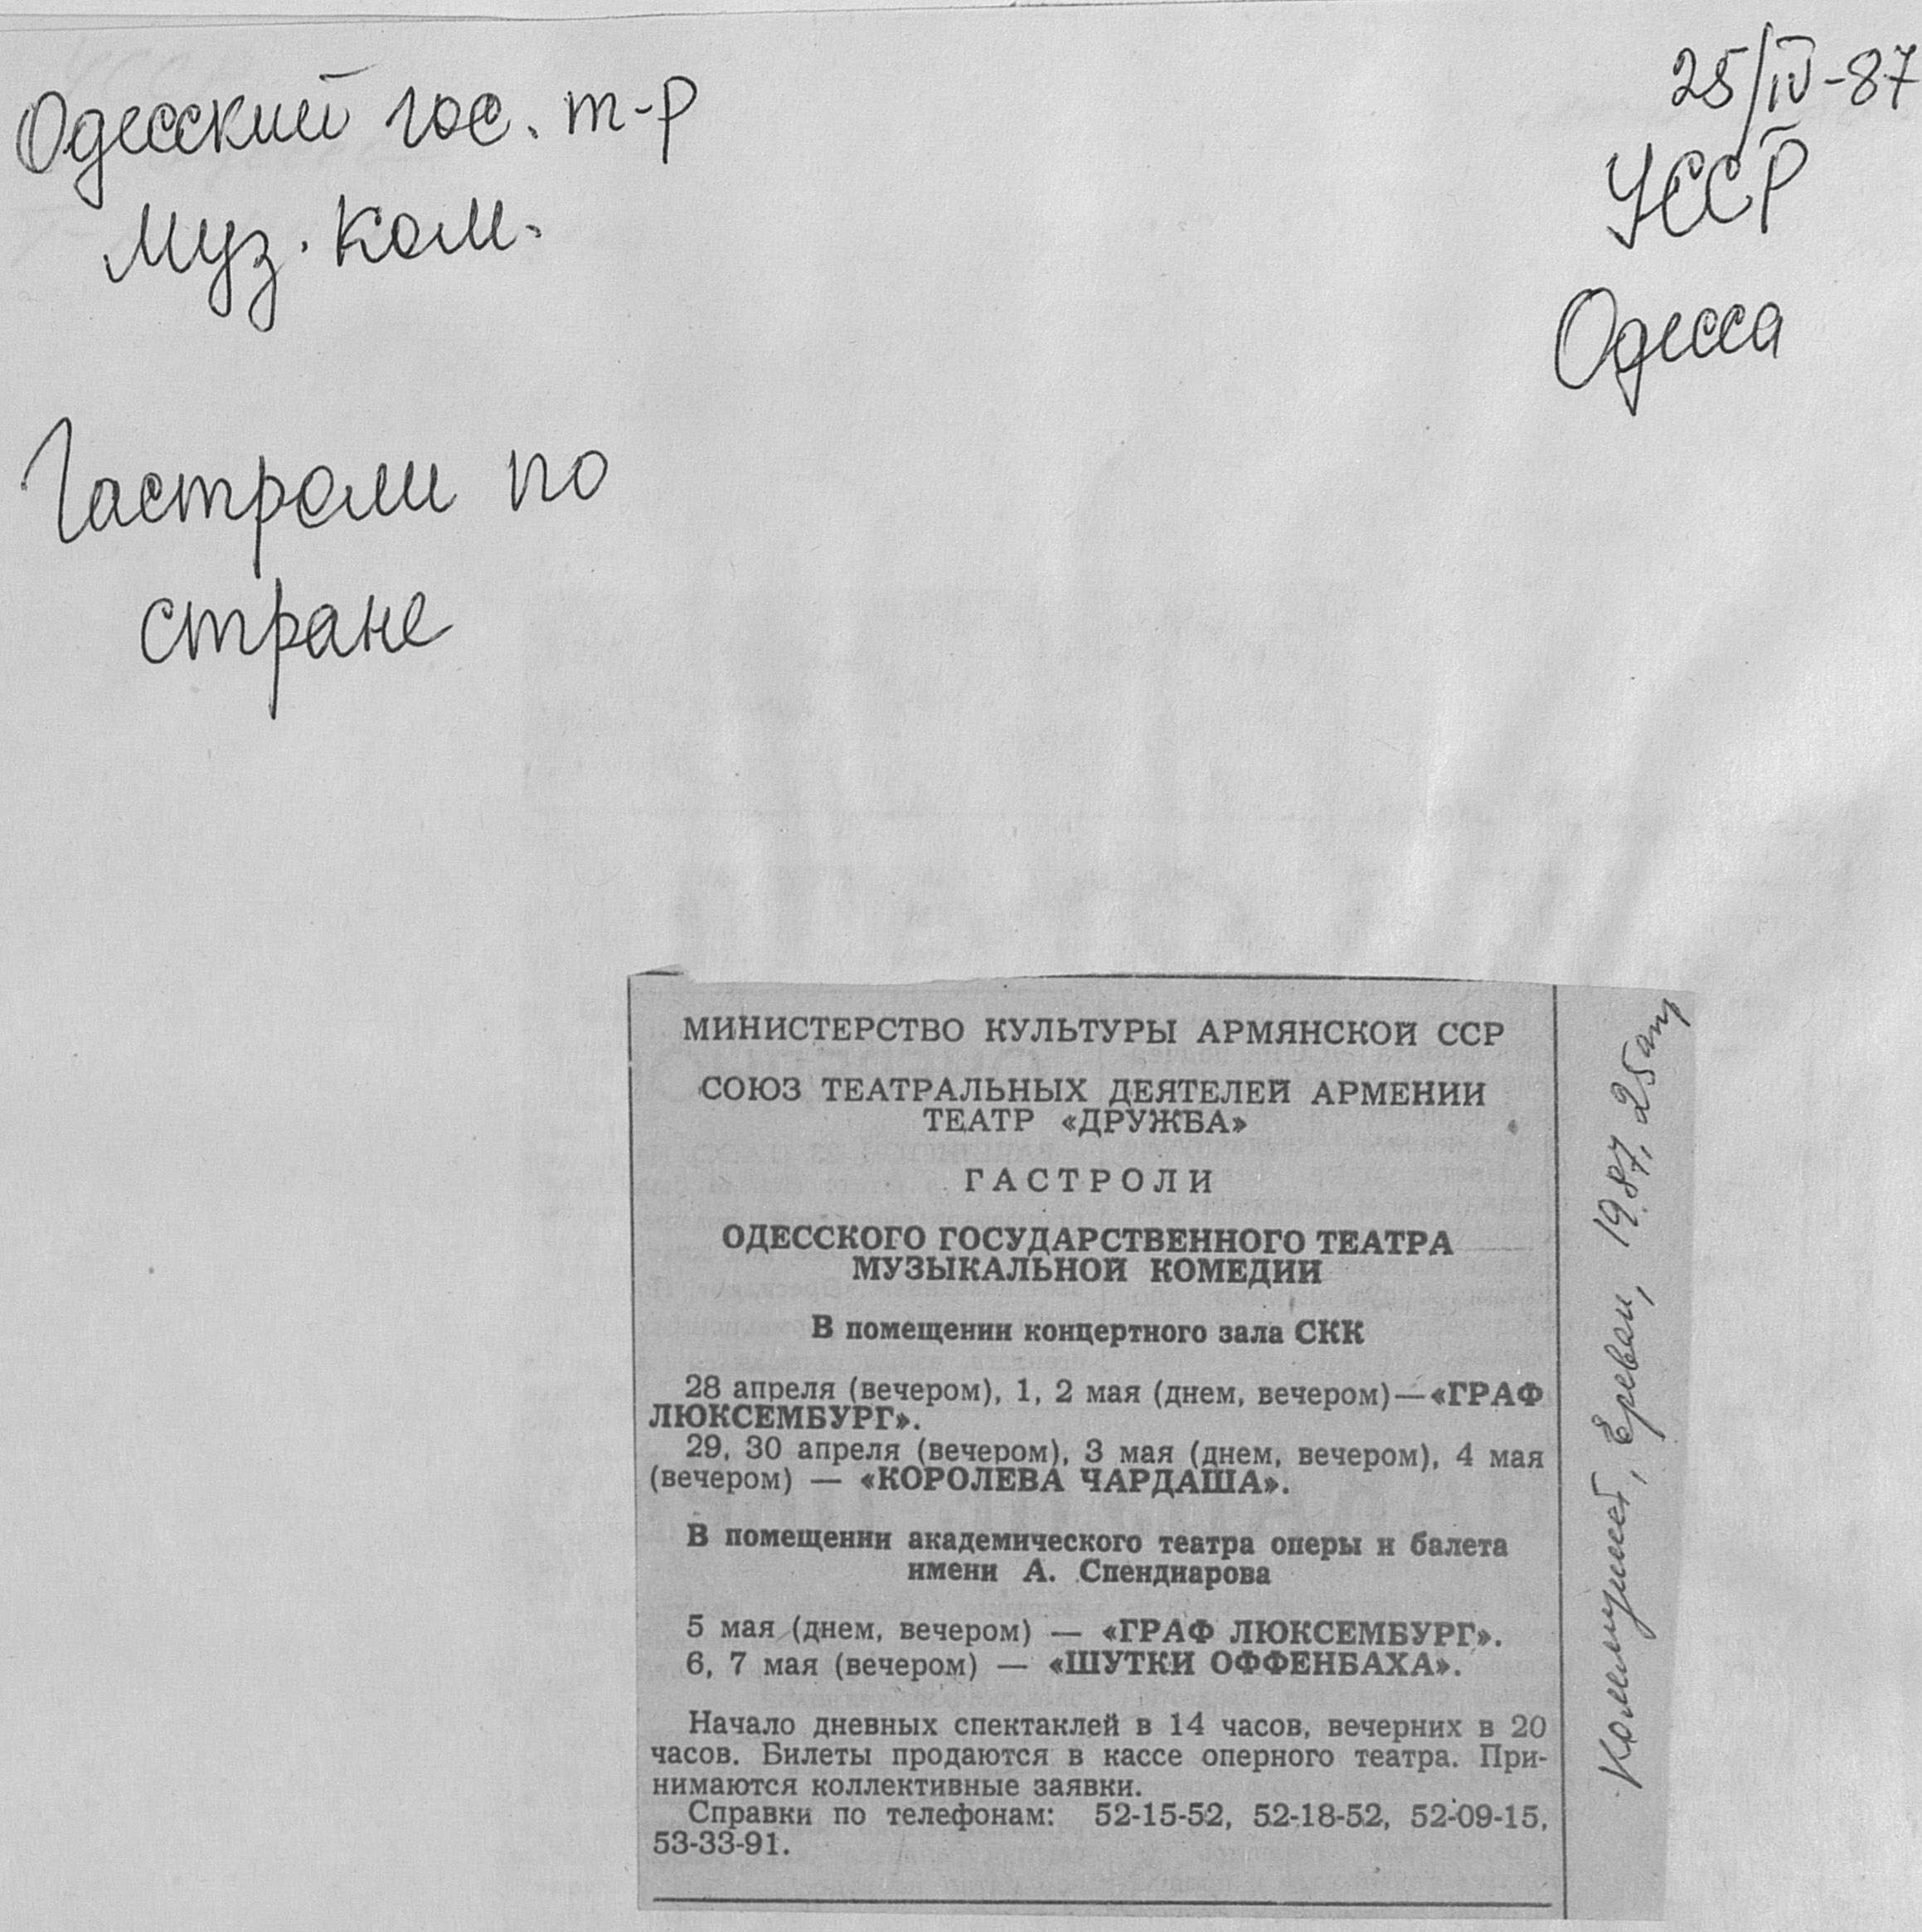 Одесский гос. т-р
муз. ком.
25/IV-87
УССР
Одесса
Гастроли по
стране
МИНИСТЕРСТВО КУЛЬТУРЫ АРМЯНСКОЙ ССР
СОЮЗ ТЕАТРАЛЬНЫХ ДЕЯТЕЛЕЙ АРМЕНИИ
ТЕАТР «ДРУЖБА»
ГАСТРОЛИ
ОДЕССКОГО ГОСУДАРСТВЕННОГО ТЕАТРА
МУЗЫКАЛЬНОЙ КОМЕДИИ
В помещении концертного зала СКК
28 апреля (вечером), 1, 2 мая (днем, вечером)—«ГРАФ
ЛЮКСЕМБУРГ».
29, 30 апреля (вечером), 3 мая (днем, вечером), 4 мая
(вечером) — «КОРОЛЕВА ЧАРДАША».
В помещении академического театра оперы и балета
имени А. Спендиарова
5 мая (днем, вечером) — «ГРАФ ЛЮКСЕМБУРГ».
6, 7 мая (вечером) — «ШУТКИ ОФФЕНБАХА».
Начало дневных спектаклей в 14 часов, вечерних в 20
часов. Билеты продаются в кассе оперного театра. При-
нимаются коллективные заявки.
Справки по телефонам: 52-15-52, 52-18-52, 52-09-15,
53-33-91.
Коммунист, Ереван, 1987, 25 апр